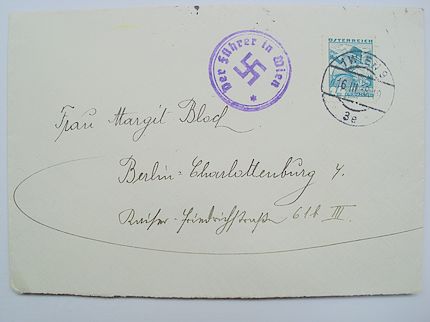 Der Führer in Wien
ÖSTERREICH
WIEN 9
16 III 38
3e
Frau Margit Bloch
Berlin-Charlottenburg 4.
Kaiser-Friedrichstraße 61b III.